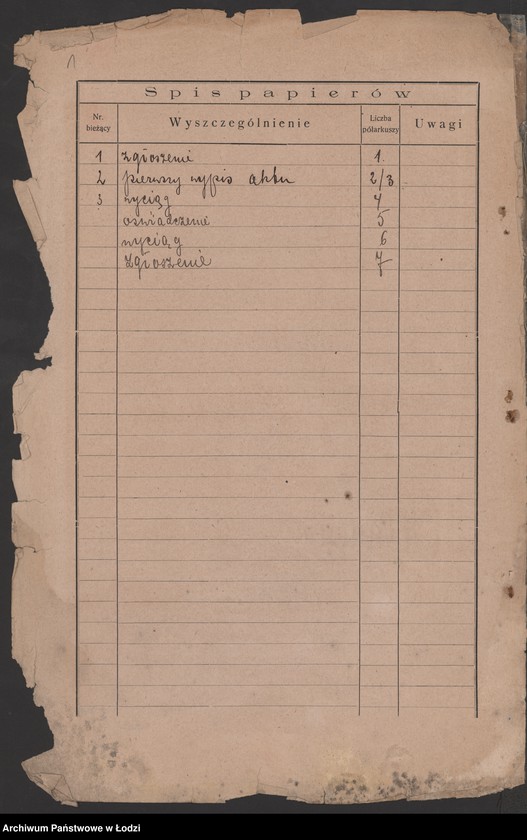 Spis papierów
Nr. bieżący Wyszczególnienie Liczba półarkuszy Uwagi
1 zgłoszenie 1.
2 pierwszy wypis aktu 2/3
3 wyciąg 4
oświadczenie 5
wyciąg 6
Zgłoszenie 7
Archiwum Państwowe w Łodzi